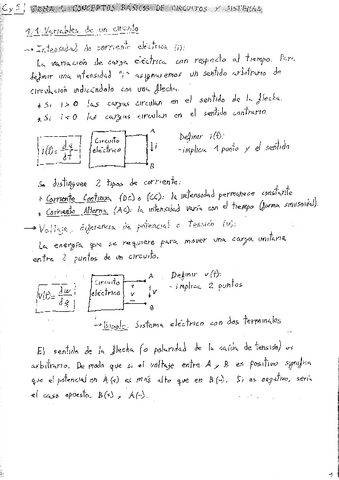 C y S TEMA 1. CONCEPTOS BÁSICOS DE CIRCUITOS Y SISTEMAS
1.1 Variables de un circuito
→ Intensidad de corriente eléctrica (i):
La variación de carga eléctrica con respecto al tiempo. Para
definir una intensidad "i" asignaremos un sentido arbitrario de
circulación indicándolo con una flecha.
• Si i > 0 las cargas circulan en el sentido de la flecha.
• Si i < 0 las cargas circulan en el sentido contrario.
i(t) = dq/dt
Circuito eléctrico
A
↓ i
B
Definir i(t):
- implica 1 punto y el sentido
Se distinguen 2 tipos de corriente:
• Corriente Continua (DC) o (CC): la intensidad permanece constante
• Corriente Alterna (AC): la intensidad varía con el tiempo (forma sinusoidal).
→ Voltaje, diferencia de potencial o tensión (v):
La energía que se requiere para mover una carga unitaria
entre 2 puntos de un circuito.
v(t) = dw/dq
Circuito eléctrico
A
+
v
-
v
B
Definir v(t):
- implica 2 puntos
→ Bipolo: Sistema eléctrico con dos terminales
El sentido de la flecha (o polaridad de la caída de tensión) es
arbitrario. De modo que si el voltaje entre A y B es positivo significa
que el potencial en A(+) es más alto que en B(-). Si es negativo, sería
el caso opuesto. B(+), A(-).
1